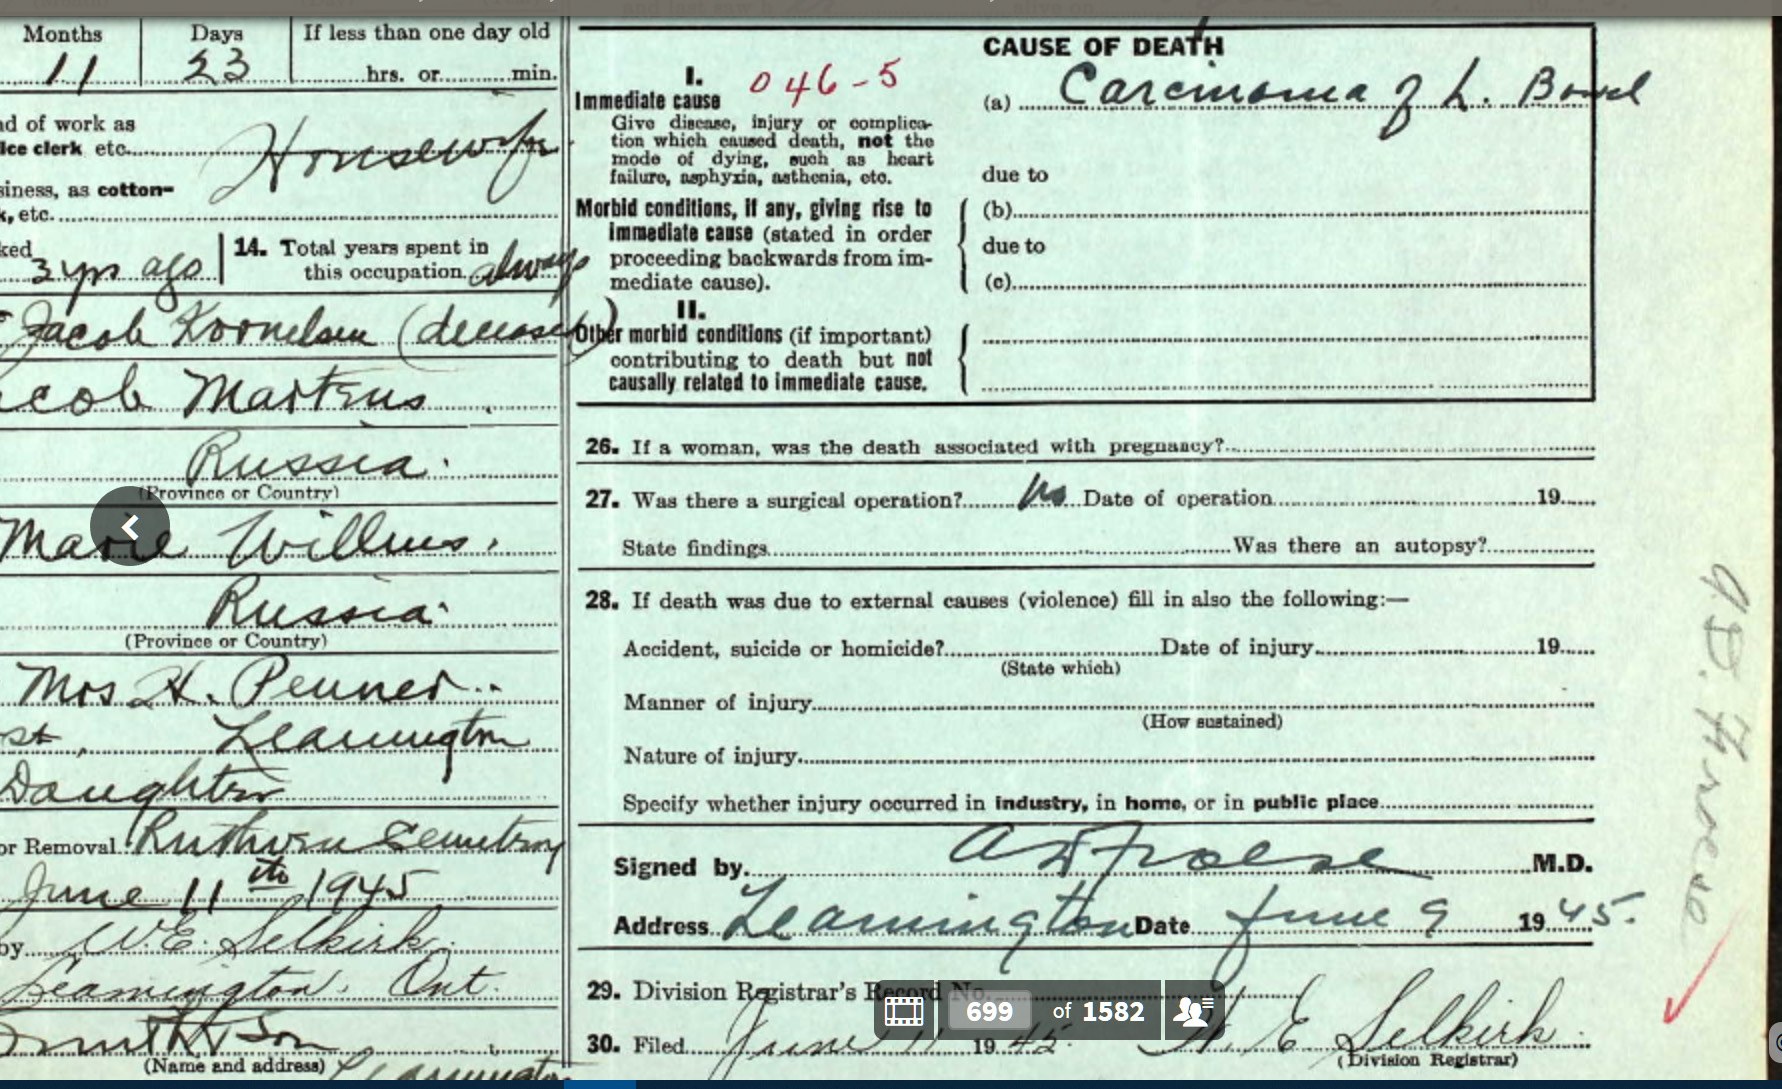 Months Days If less than one day old
11 23 hrs. or min.
nd of work as
ice clerk etc. Housewife
siness, as cotton-
k, etc.
ked 3 yrs ago 14. Total years spent in
this occupation always
Jacob Kornelsen (deceased)
acob Martens
Russia.
(Province or Country)
Marie Willms.
Russia.
(Province or Country)
Mrs H. Penner
st, Leamington
Daughter
or Removal Ruthven Cemetery
June 11th 1945
by W. E. Selkirk
Leamington. Ont.
Smith & Son
(Name and address) Leamington
CAUSE OF DEATH
I. 046-5
Immediate cause (a) Carcinoma of L. Bowel
Give disease, injury or complica-
tion which caused death, not the
mode of dying, such as heart
failure, asphyxia, asthenia, etc. due to
Morbid conditions, if any, giving rise to (b)
immediate cause (stated in order due to
proceeding backwards from im-
mediate cause). (c)
II.
Other morbid conditions (if important)
contributing to death but not
causally related to immediate cause.
26. If a woman, was the death associated with pregnancy?
27. Was there a surgical operation? no Date of operation 19
State findings Was there an autopsy?
28. If death was due to external causes (violence) fill in also the following:—
Accident, suicide or homicide? Date of injury 19
(State which)
Manner of injury
(How sustained)
Nature of injury
Specify whether injury occurred in industry, in home, or in public place
Signed by A D Froese M.D.
Address Leamington Date June 9 1945.
29. Division Registrar's Record No.
30. Filed June 11 1945 W. E. Selkirk
(Division Registrar)
699 of 1582
A.D. Froese